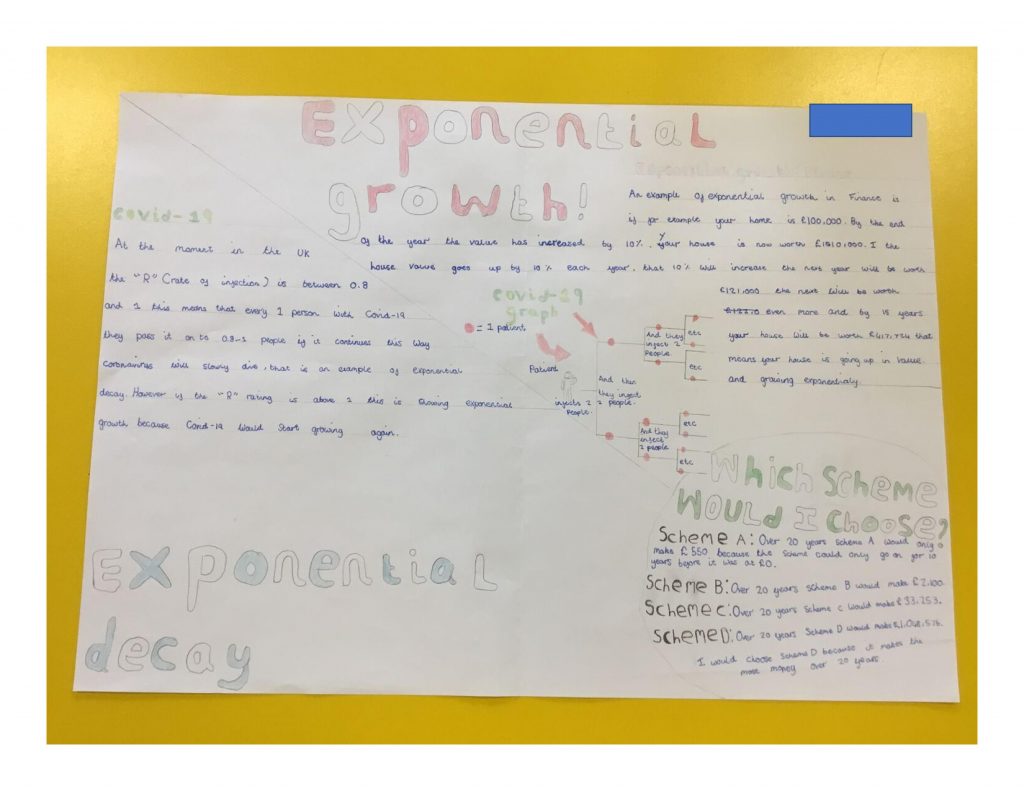 Exponential
growth!
An example of exponential growth in Finance is
if for example your home is £100,000. By the end
of the year the value has increased by 10%. your house is now worth £1010,000. I the
house value goes up by 10% each year, that 10% will increase the next year will be worth
£121,000 the next will be worth
even more and by 15 years
your house will be worth £417,724 that
means your house is going up in value
and growing exponentially.
covid-19
At the moment in the UK
the "R" (rate of infection) is between 0.8
and 1 this means that every 1 person with Covid-19
they pass it on to 0.8-1 people if it continues this way
coronavirus will slowly die, that is an example of exponential
decay. However if the "R" rating is above 1 this is showing exponential
growth because Covid-19 would start growing again.
covid-19
graph
= 1 patient
Patient
infects 2
people.
And then
they infect
2 people.
And they
infect 2
people
etc
etc
And they
infect
2 people
etc
etc
Which scheme
would I choose?
Scheme A: Over 20 years scheme A would only
make £550 because the scheme could only go on for 10
years before it was at £0.
Scheme B: Over 20 years scheme B would make £2,100.
Scheme C: Over 20 years scheme C would make £33,253.
Scheme D: Over 20 years scheme D would make £1,048,576.
I would choose scheme D because it makes the
most money over 20 years.
Exponential
decay